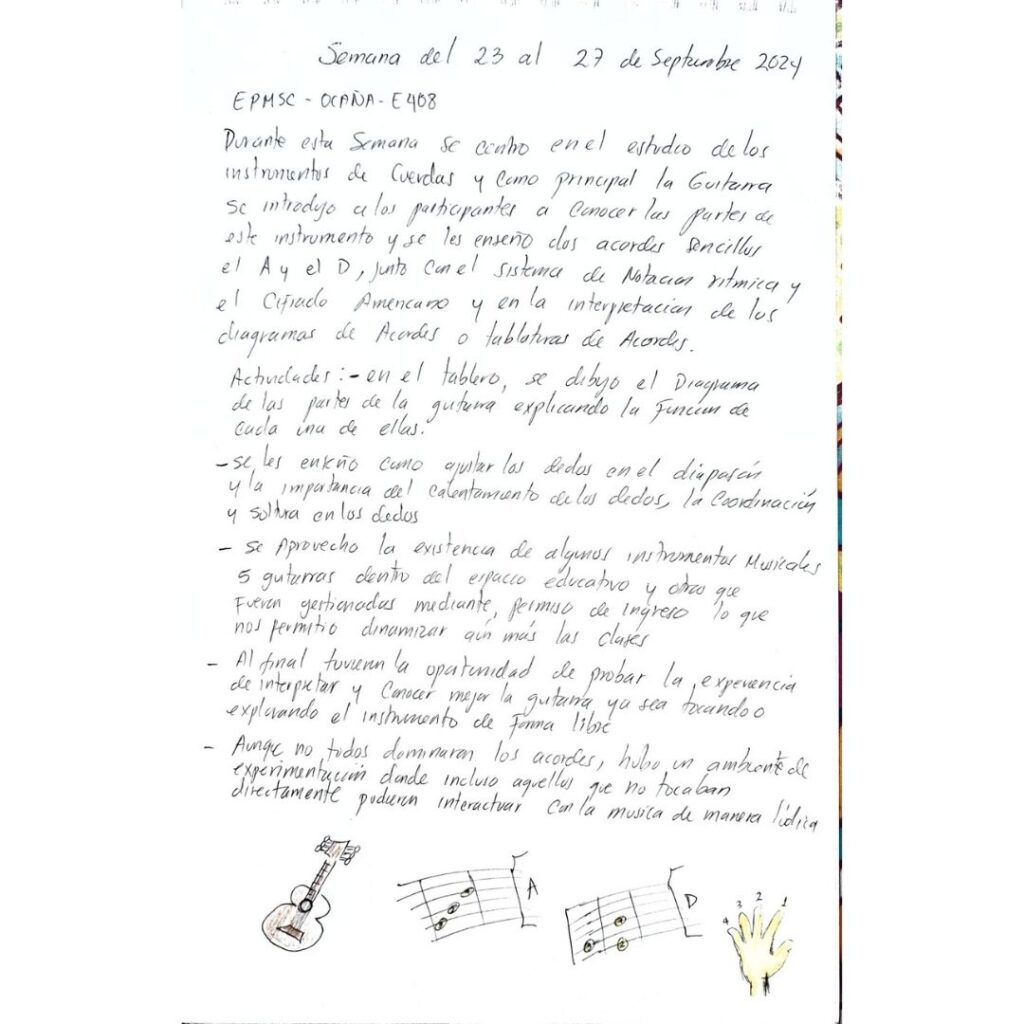 Semana del 23 al 27 de Septiembre 2024
EPMSC - OCAÑA - E408
Durante esta Semana se centro en el estudio de los
instrumentos de Cuerdas y como principal la Guitarra
se introdujo a los participantes a Conocer las partes de
este instrumento y se les enseño dos acordes Sencillos
el A y el D, junto con el sistema de Notacion ritmica y
el Cifrado Americano y en la interpretacion de los
diagramas de Acordes o tablaturas de Acordes.
Actividades :- en el tablero, se dibujo el Diagrama
de las partes de la guitarra explicando la Funcion de
cada una de ellas.
- se les enseño como ajustar los dedos en el diapasón
y la importancia del calentamiento de los dedos, la Coordinación
y soltura en los dedos
- se Aprovecho la existencia de algunos instrumentos Musicales
5 guitarras dentro del espacio educativo y otros que
Fueron gestionadas mediante, permiso de ingreso lo que
nos permitio dinamizar aún más las clases
- Al final tuvieron la oportunidad de probar la experiencia
de interpretar y Conocer mejor la guitarra ya sea tocando o
explorando el instrumento de Forma libre
- Aunque no todos dominaran los acordes, hubo un ambiente de
experimentación donde incluso aquellos que no tocaban
directamente pudieron interactuar con la musica de manera lúdica
A
D
1
2
3
4